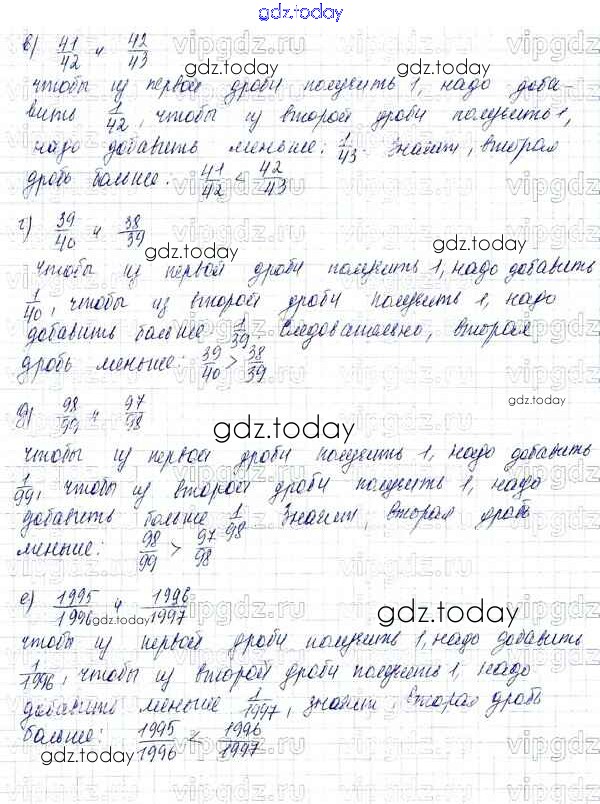 gdz.today
в) 41/42 и 42/43
чтобы из первой дроби получить 1, надо доба-
вить 1/42, чтобы из второй дроби получить 1,
надо добавить меньше: 1/43. Значит, вторая
дробь больше: 41/42 < 42/43
г) 39/40 и 38/39
чтобы из первой дроби получить 1, надо добавить
1/40, чтобы из второй дроби получить 1, надо
добавить больше 1/39. Следовательно, вторая
дробь меньше: 39/40 > 38/39
д) 98/99 и 97/98
чтобы из первой дроби получить 1, надо добавить
1/99, чтобы из второй дроби получить 1, надо
добавить больше 1/98. Значит, вторая дробь
меньше: 98/99 > 97/98
е) 1995/1996 и 1996/1997
чтобы из первой дроби получить 1, надо добавить
1/1996, чтобы из второй дроби получить 1, надо
добавить меньше 1/1997, значит вторая дробь
больше: 1995/1996 < 1996/1997